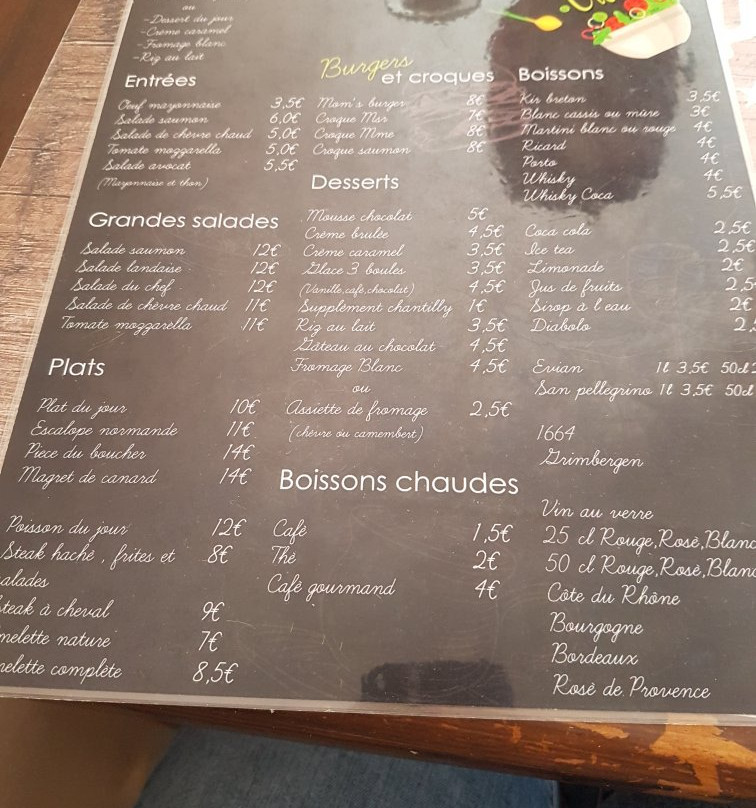 ou
-Dessert du jour
-Crème caramel
-Fromage blanc
-Riz au lait
Entrées
Oeuf mayonnaise 3,5€
Salade saumon 6,0€
Salade de chèvre chaud 5,0€
Tomate mozzarella 5,0€
Salade avocat 5,5€
(Mayonnaise et thon)
Grandes salades
Salade saumon 12€
Salade landaise 12€
Salade du chef 12€
Salade de chèvre chaud 11€
Tomate mozzarella 11€
Plats
Plat du jour 10€
Escalope normande 11€
Pièce du boucher 14€
Magret de canard 14€
Poisson du jour 12€
Steak haché , frites et 8€
alades
teak à cheval 9€
melette nature 7€
elette complète 8,5€
Burgers
et croques
Mom's burger 8€
Croque Msr 7€
Croque Mme 8€
Croque saumon 8€
Desserts
Mousse chocolat 5€
Crème brulée 4,5€
Crème caramel 3,5€
Glace 3 boules 3,5€
(Vanille,café,chocolat) 4,5€
Supplément chantilly 1€
Riz au lait 3,5€
Gâteau au chocolat 4,5€
Fromage Blanc 4,5€
ou
Assiette de fromage 2,5€
(chèvre ou camembert)
Boissons chaudes
Café 1,5€
Thé 2€
Café gourmand 4€
Boissons
Kir breton 3,5€
Blanc cassis ou mûre 3€
Martini blanc ou rouge 4€
Ricard 4€
Porto 4€
Whisky 4€
Whisky Coca 5,5€
Coca cola 2,5€
Ice tea 2,5€
Limonade 2€
Jus de fruits 2,5
Sirop à l eau 2€
Diabolo 2,
Evian 1l 3,5€ 50cl
San pellegrino 1l 3,5€ 50cl
1664
Grimbergen
Vin au verre
25 cl Rouge,Rosè,Blanc
50 cl Rouge,Rosè,Blanc
Côte du Rhône
Bourgogne
Bordeaux
Rosè de Provence